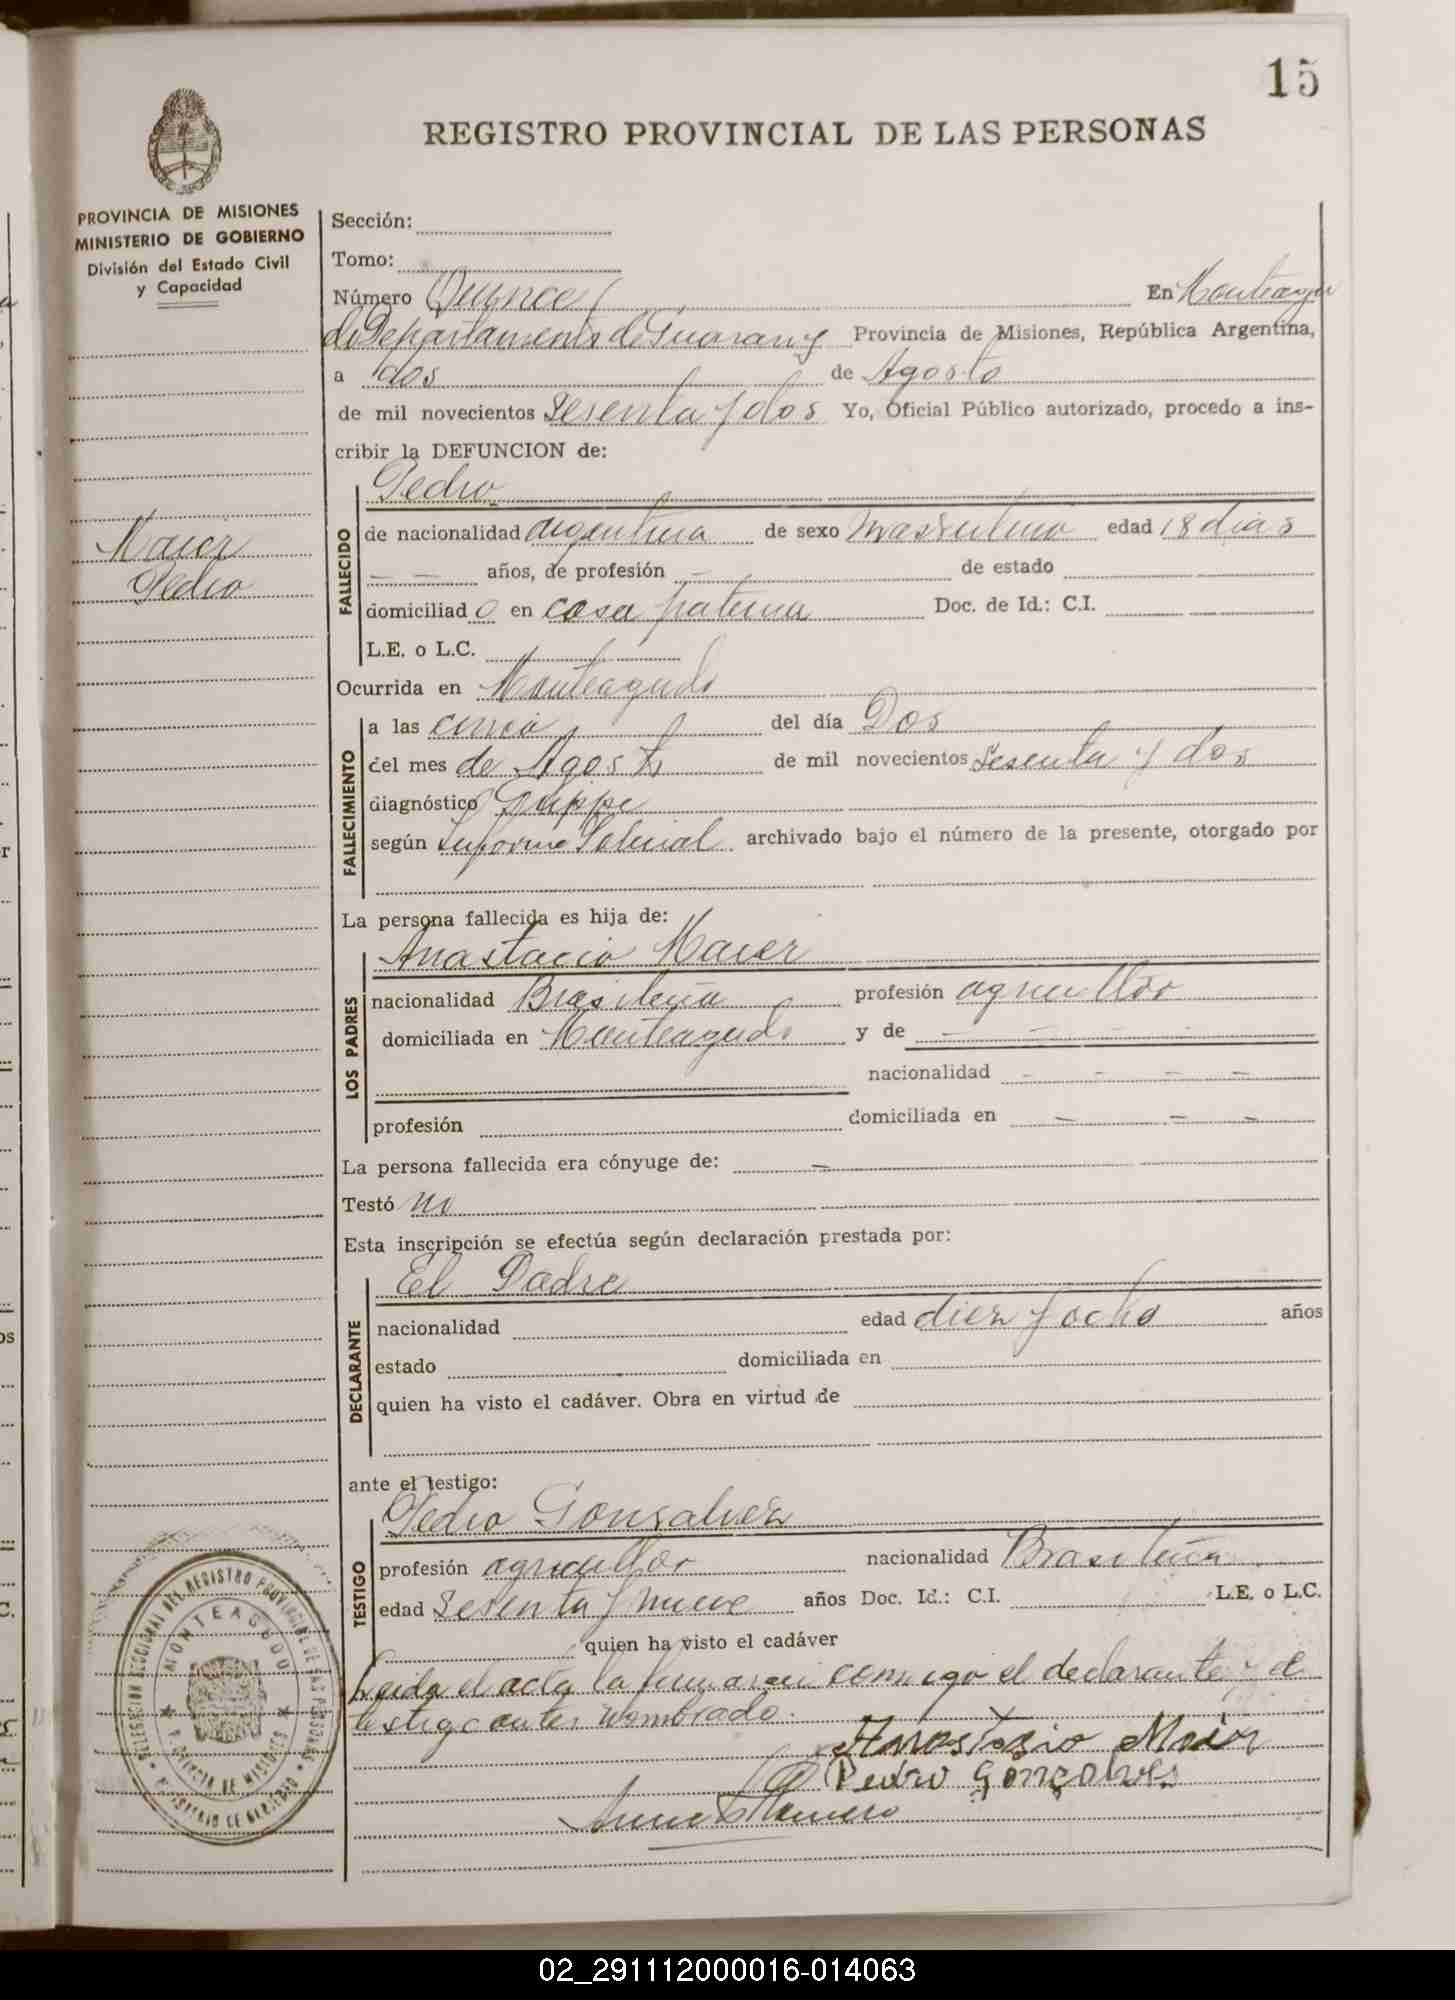 15
REGISTRO PROVINCIAL DE LAS PERSONAS
PROVINCIA DE MISIONES
MINISTERIO DE GOBIERNO
División del Estado Civil
y Capacidad
Maier
Pedro
Sección:
Tomo:
Número Quince En Monteagu
do Departamento de Guarany Provincia de Misiones, República Argentina,
a dos de Agosto
de mil novecientos sesenta y dos Yo, Oficial Público autorizado, procedo a ins-
cribir la DEFUNCION de:
Pedro
FALLECIDO
de nacionalidad argentina de sexo masculino edad 18 dias
años, de profesión — de estado
domiciliad o en casa paterna Doc. de Id.: C.I.
L.E. o L.C.
Ocurrida en Monteagudo
FALLECIMIENTO
a las cinco del día Dos
del mes de Agosto de mil novecientos Sesenta y dos
diagnóstico Grippe
según Informe Policial archivado bajo el número de la presente, otorgado por
La persona fallecida es hija de:
Anastacio Maier
LOS PADRES
nacionalidad Brasileña profesión agricultor
domiciliada en Monteagudo y de — — — —
nacionalidad — — — —
profesión domiciliada en — — —
La persona fallecida era cónyuge de: —
Testó no
Esta inscripción se efectúa según declaración prestada por:
El Padre
DECLARANTE
nacionalidad edad diez y ocho años
estado domiciliada en
quien ha visto el cadáver. Obra en virtud de
ante el testigo:
Pedro Gonsalvez
TESTIGO
profesión agricultor nacionalidad Brasileña
edad Sesenta y nueve años Doc. Id.: C.I. L.E. o L.C.
quien ha visto el cadáver
Leida el acta la firmaran conmigo el declarante y el
testigo antes nombrado.
Anastazio Maier
Pedro Gonçalves
DELEGACION SECCIONAL DEL REGISTRO PROVINCIAL DE LAS PERSONAS
MONTEAGUDO
PROVINCIA DE MISIONES
MINISTERIO DE GOBIERNO
02_291112000016-014063